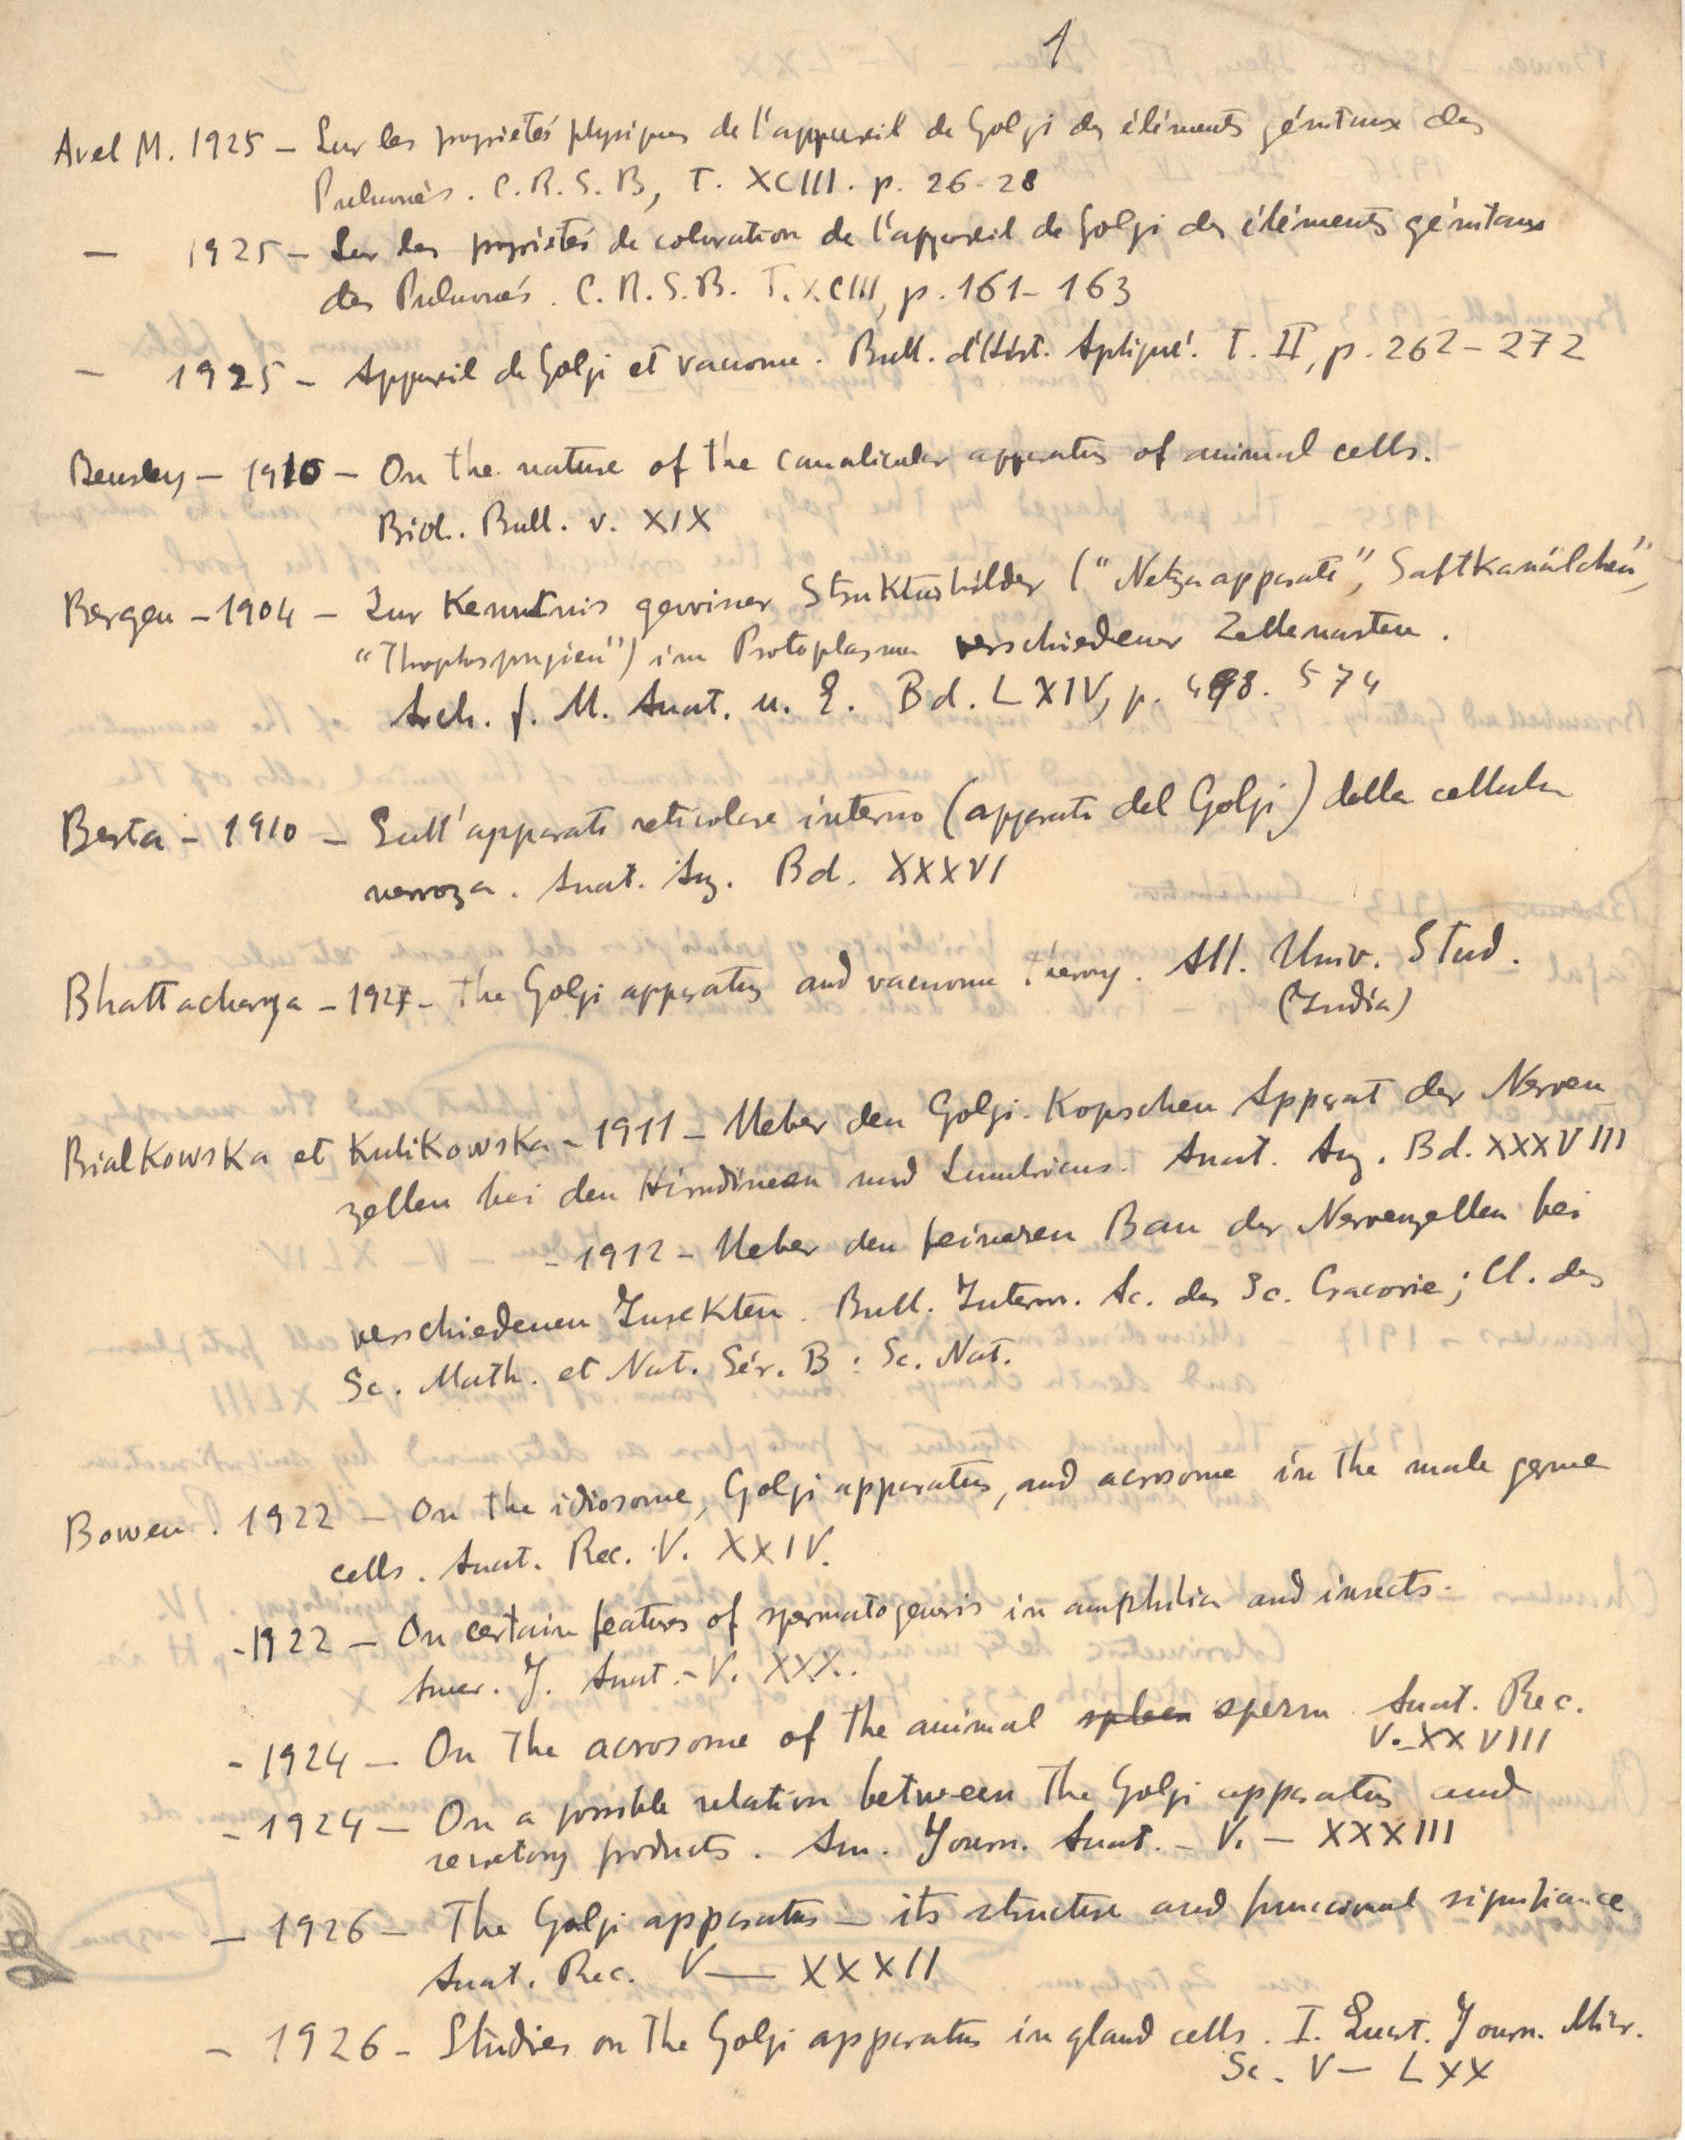 1
Avel M. 1925 - Sur les proprietés physiques de l'appareil de Golgi des éléments génitaux des
Pulmonés. C. R. S. B, T. XCIII. p. 26-28
— 1925 - Sur les proprietés de coloration de l'appareil de Golgi des éléments génitaux
des Pulmonés. C. R. S. B. T. XCIII, p. 161-163
— 1925 - Appareil de Golgi et vacuome. Bull. d'Hist. Apliqué. T. II, p. 262-272
Bensley - 1910 - On the nature of the canalicular apparatus of animal cells.
Biol. Bull. v. XIX
Bergen - 1904 - Zur Kenntnis gewisser Strukturbilder ("Netzapparate", Saftkanälchen",
"Trophospongien") im Protoplasma verschiedener Zellenarten.
Arch. f. M. Anat. u. E. Bd. LXIV, p. 498. 574
Berta - 1910 - Sull'apparato reticolare interno (apparato del Golgi) della cellula
nervoza. Anat. Anz. Bd. XXXVI
Bhattacharya - 192 - The Golgi apparatus and vacuome theory. All. Univ. Stud.
(India)
Bialkowska et Kulikowska - 1911 - Ueber den Golgi-Kopschen Apparat der Nerven
zellen bei den Hirudineen und Lumbricus. Anat. Anz. Bd. XXXVIII
- 1912 - Ueber den feineren Bau der Nervenzellen bei
verschiedenen Insekten. Bull. Intern. Ac. des Sc. Cracovie; Cl. des
Sc. Math. et Nat. Sér. B: Sc. Nat.
Bowen. 1922 - On the idiosome, Golgi apparatus, and acrosome in the male germe
cells. Anat. Rec. V. XXIV.
- 1922 - On certain features of spermatogenesis in amphibia and insects.
Amer. J. Anat. - V. XXX.
- 1924 - On the acrosome of the animal spleen sperm. Anat. Rec.
V. - XXVIII
- 1924 - On a possible relation between the Golgi apparatus and
secretory products. Am. Journ. Anat. - V. - XXXIII
- 1926 - The Golgi apparatus - its structure and funccional signifiance
Anat. Rec. V — XXXII
- 1926 - Studies on the Golgi apparatus in gland cells. I. Quart. Journ. Micr.
Sc. V — LXX